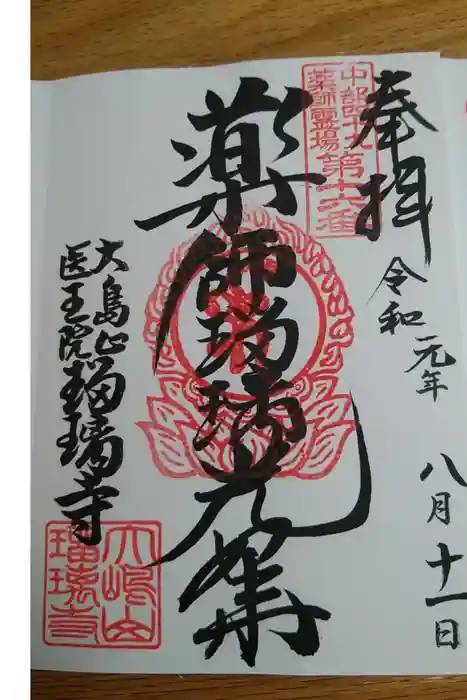 奉拝
令和元年
八月十一日
中部四十九
薬師霊場第十六番
薬師瑠璃光
大島山瑠璃寺
医王院
大嶋山
瑠璃寺